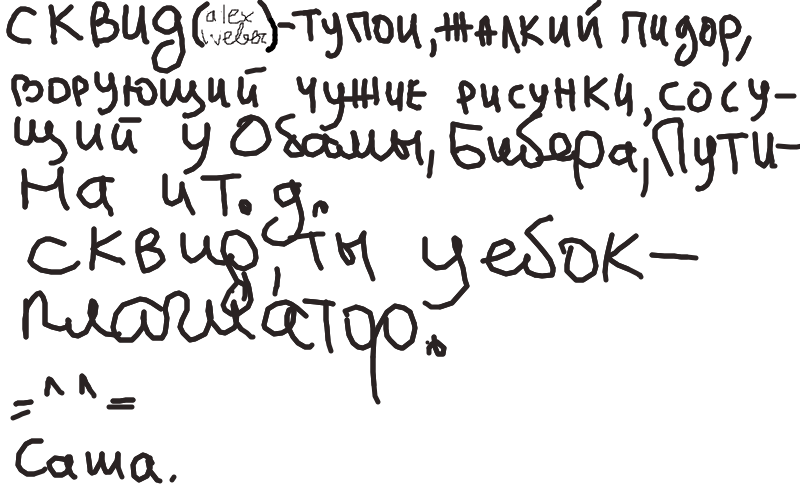 сквид(alex weber)-тупой, жалкий пидор,
ворующий чужие рисунки, сосу-
щий у Обамы, Бибера, Пути-
на и т. д.
сквид, ты уебок-
плагиатор.
=^^=
Саша.